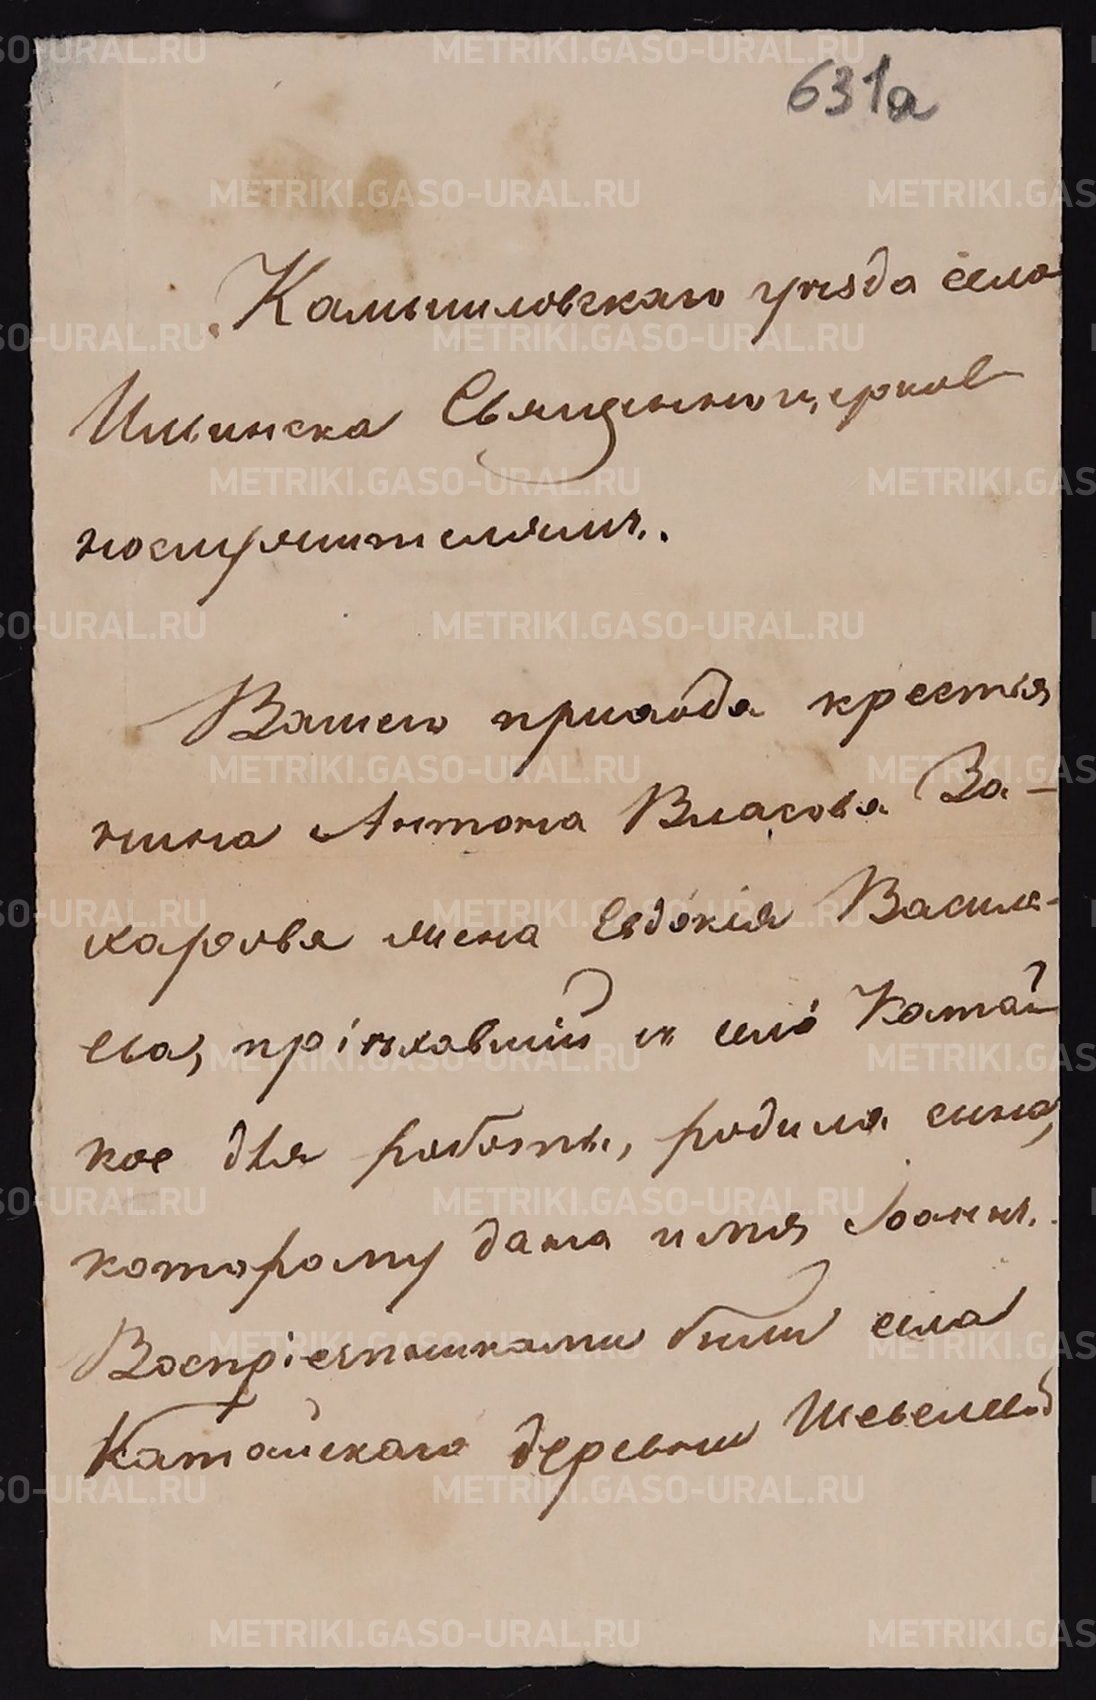 631а
Камышловскаго уѣзда села
Ильинска Священноцерков
нослужителямъ.
Вашего прихода крестья
нина Антона Власова За-
харова жена Евдокія Василь-
ева, пріѣхавшій въ село Катай
кое для работы, родила сына,
которому дана имя Іоаннъ.
Воспріемниками были села
Катайскаго деревни Шевелевой